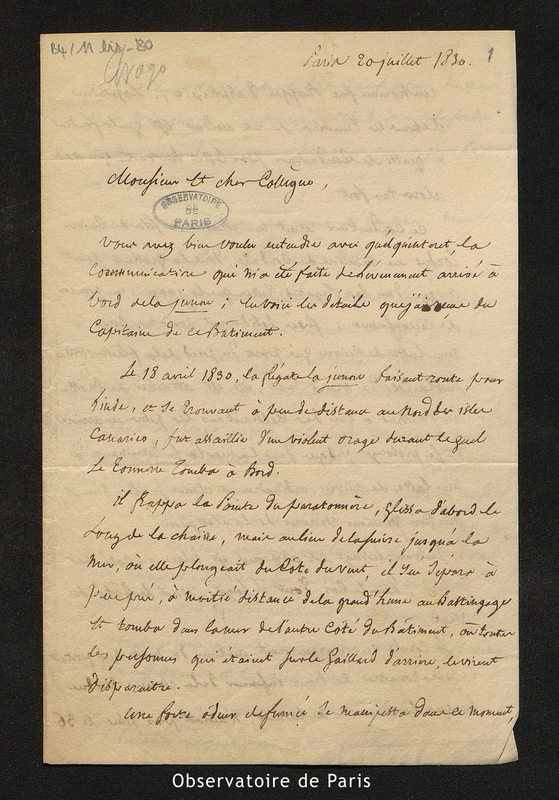 B4/11 bis-20
Arago
Paris 20 juillet 1830.
1
Monsieur Et cher Collègue,
OBSERVATOIRE
DE
PARIS
Vous avez bien voulu entendre avec quelqu'intéret, la
Communication qui m'a été faite de l'évènement arrivé à
bord de la junon ; en voici les détails que j'ai reçus du
Capitaine de ce Batiment.
Le 18 avril 1830, la frégate la junon faisant route pour
l'inde, et se trouvant à peu de distance au Nord des isles
Canaries, fut assaillie d'un violent orage durant lequel
Le Tonnerre Tomba à Bord.
il frappa la Pointe du paratonnère, glissa d'abord le
Long de la chaîne, mais au lieu de la suivre jusqu'à la
Mer, où elle plongeait du Côté du vent, il s'en sépara à
peu près, à moitié distance de la grand'hune au Bastingage
Et tomba dans la mer de l'autre Coté du Batiment, où toutes
les personnes qui étaient sur le Gaillard d'arrière, le virent
disparaitre.
une forte odeur de fumée se manifesta dans ce moment,
Observatoire de Paris